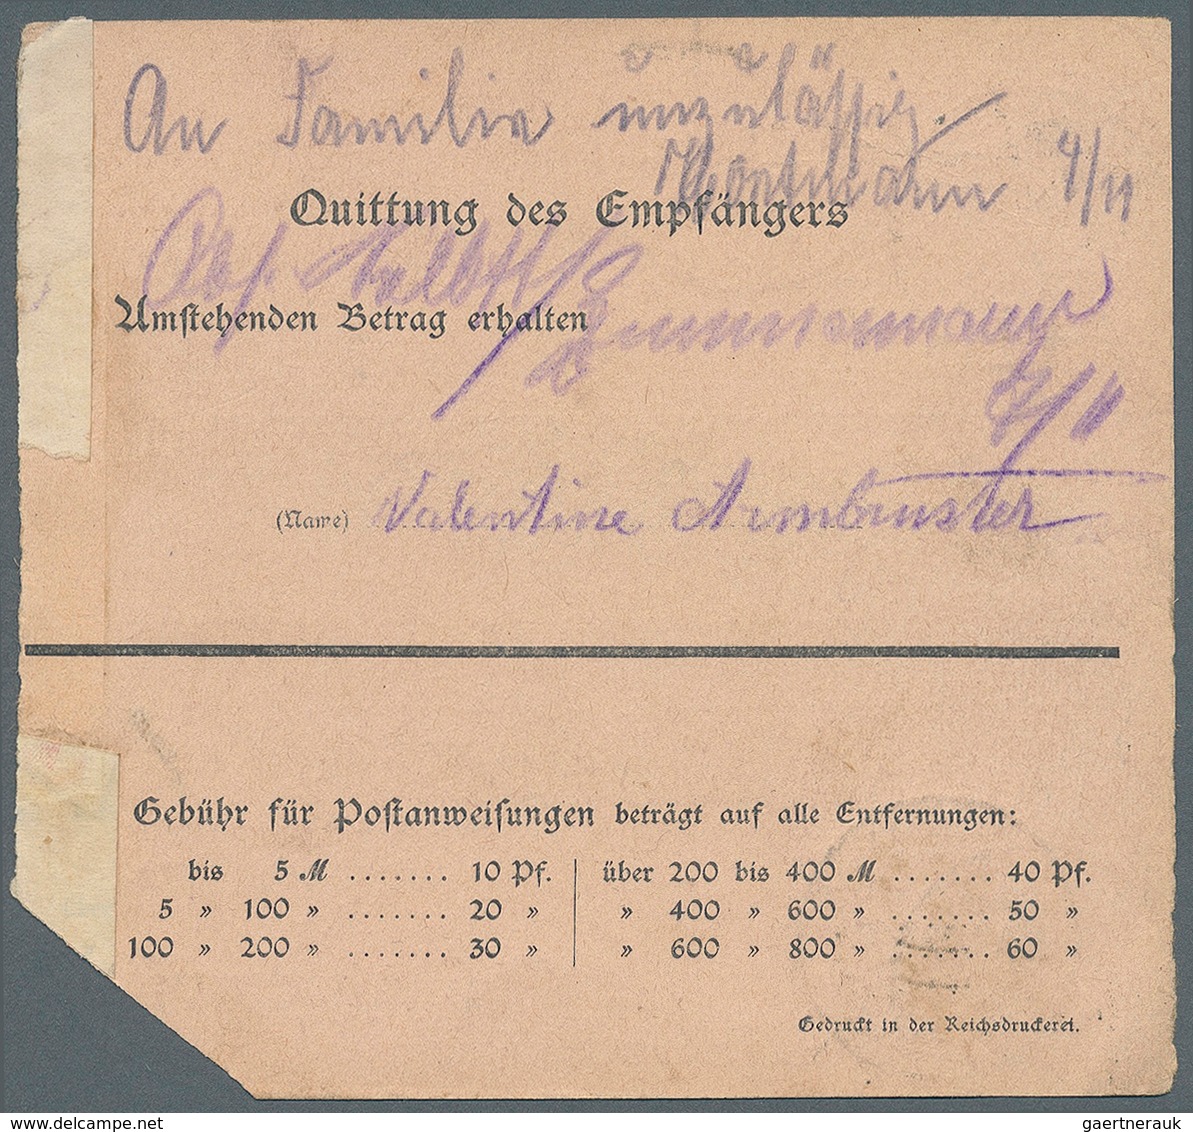 An Familie unzulässig.
Wortmann 4/11
Quittung des Empfängers
Umstehenden Betrag erhalten
Zimmermann
7/11
(Name) Valentine Armbruster
Gebühr für Postanweisungen beträgt auf alle Entfernungen:
bis 5 M ....... 10 Pf. über 200 bis 400 M ....... 40 Pf.
5 » 100 » ....... 20 » » 400 » 600 » ....... 50 »
100 » 200 » ....... 30 » » 600 » 800 » ....... 60 »
Gedruckt in der Reichsdruckerei.
gaertnerauk